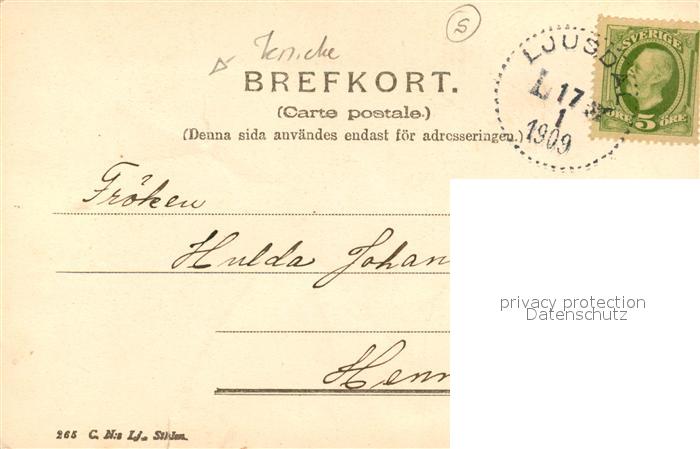 S
BREFKORT.
(Carte postale.)
(Denna sida användes endast för adresseringen.)
LJUSDAL
L 17
1
1909
SVERIGE
ÖRE 5 ÖRE
Fröken
Hulda Johan
Henn
privacy protection
Datenschutz
265 C. N:s Lj., Sthlm.